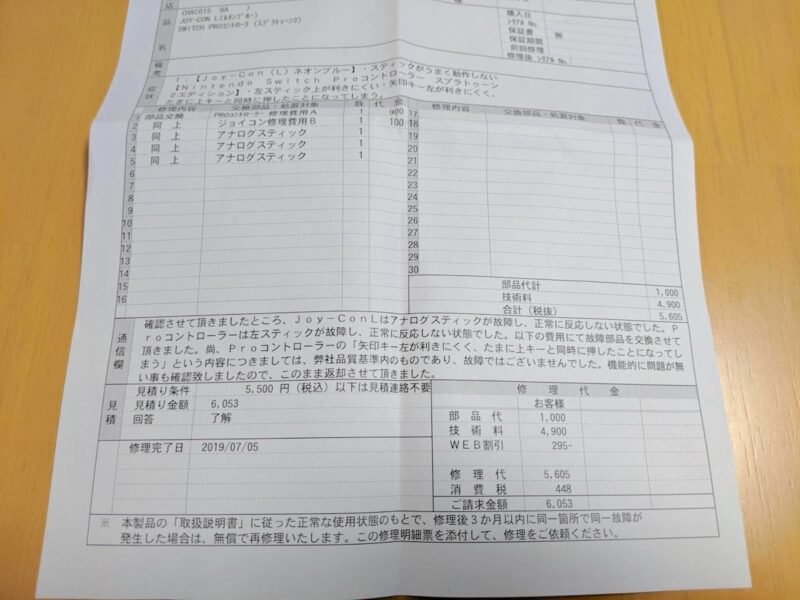 店
(HAC015 BA )
品 JOY-CON L(ネオンブルー)
SWITCH PROコントローラ (スプラトゥーン2)
名
購入日
シリアル No.
保証書 無
保証期間
前回修理
修理後 シリアル No.
備考
症状 1:【Joy-Con (L) ネオンブルー】・スティックがうまく動作しない
【Nintendo Switch Proコントローラー スプラトゥーン
2エディション】・左スティック上が利きにくい・矢印キー左が利きにくく、
たまに上キーと同時に押したことになってしまう。
修理内容 交換部品・処置対象 数 代金 修理内容 交換部品・処置対象 数 代金
1 部品交換 PROコントローラー 修理費用A 1 900 17
2 同上 ジョイコン修理費用B 1 100 18
3 同上 アナログスティック 1 19
4 同上 アナログスティック 1 20
5 同上 アナログスティック 1 21
6 22
7 23
8 24
9 25
10 26
11 27
12 28
13 29
14 30
15 部品代計 1,000
16 技術料 4,900
合計(税抜) 5,605
通信欄 確認させて頂きましたところ、Joy-ConLはアナログスティックが故障し、正常に反応しない状態でした。P
roコントローラーは左スティックが故障し、正常に反応しない状態でした。以下の費用にて故障部品を交換させて
頂きました。尚、Proコントローラーの「矢印キー左が利きにくく、たまに上キーと同時に押したことになってし
まう」という内容につきましては、弊社品質基準内のものであり、故障ではございませんでした。機能的に問題が無
い事も確認致しましたので、このまま返却させて頂きました。
見積 見積り条件 5,500 円(税込)以下は見積連絡不要
見積り金額 6,053
回答 了解
修理完了日 2019/07/05
修理代金
お客様
部品代 1,000
技術料 4,900
WEB割引 295-
修理代 5,605
消費税 448
ご請求金額 6,053
※ 本製品の「取扱説明書」に従った正常な使用状態のもとで、修理後3か月以内に同一箇所で同一故障が
発生した場合は、無償で再修理いたします。この修理明細票を添付して、修理をご依頼ください。